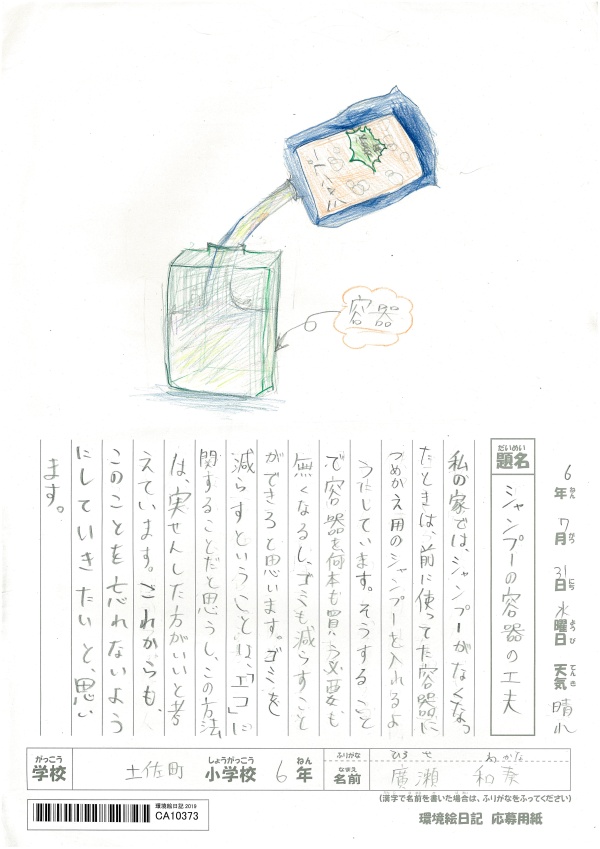 シャンプー
容器
6年 7月 31日 水曜日 天気 晴れ
ねん がつ にち ようび てんき
だいめい
題名
シャンプーの容器の工夫
私の家では、シャンプーがなくなっ
たときは、前に使ってた容器に
つめかえ用のシャンプーを入れるよ
うにしています。そうすること
で容器を何本も買う必要も
無くなるし、ゴミも減らすこと
ができると思います。ゴミを
減らすということは、「エコ」に
関することだと思うし、この方法
は、実せんした方がいいと考
えています。これからも、
このことを忘れないよう
にしていきたいと、思い
ます。
がっこう しょうがっこう ねん
学校 土佐町 小学校 6年
ふりがな ひろせ わかな
なまえ
名前 廣瀬 和奏
(漢字で名前を書いた場合は、ふりがなをふってください)
環境絵日記 2019
CA10373
環境絵日記 応募用紙